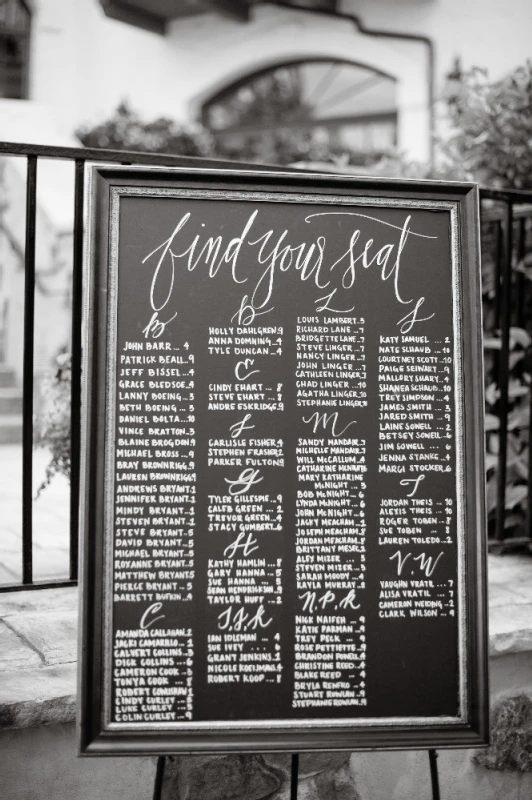 find your seat
B
JOHN BARR ... 4
PATRICK BEALL..9
JEFF BISSEL ..4
GRACE BLEDSOE.4
LANNY BOEING ...3
BETH BOEING ...3
DANIEL BOLTA...10
VINCE BRATTON.3
BLAINE BROGDON.9
MICHAEL BROSS ..9
BRAY BROWNRIGG.9
LAUREN BROWNRIGG9
ANDREWS BRYANT.1
JENNIFER BRYANT.1
MINDY BRYANT..1
STEVEN BRYANT..1
STEVE BRYANT..5
DAVID BRYANT..5
MICHAEL BRYANT.5
ROXANNE BRYANT.5
MATTHEW BRYANT.5
PIERCE BRYANT..5
BARRETT BUFKIN..9
C
AMANDA CALLAHAN.2
JACKI CAMARILLO..1
CALVERT COLLINS.3
DICK COLLINS ...6
CAMERON COOK ..3
TONYA COOK ...8
ROBERT COWHAN.1
CINDY CURLEY...5
LUKE CURLEY ...5
COLIN CURLEY...9
D
HOLLY DAHLGREN.9
ANNA DOMNING..4
TYLE DUNCAN...4
E
CINDY EHART ... 8
STEVE EHART .. 8
ANDRE ESKRIDGE.9
F
CARLISLE FISHER.9
STEPHEN FRASIER2
PARKER FULTON9
G
TYLER GILLESPIE..9
CALEB GREEN ..2
TREVOR GREEN..4
STACY GUMBERT.6
H
KATHY HAMLIN ..8
GARY HANNA ...5
SUE HANNA ....5
SEAN HENDRICKSON.9
TAYLOR HILL ...2
I.J.K
IAN IDLEMAN ... 4
SUE IVEY ... 6
GRANT JENKINS..1
NICOLE KOELMING.4
ROBERT KOOP ...8
L
LOUIS LAMBERT.3
RICHARD LANE ..7
BRIDGETTE LANE.7
STEVE LINGER ..7
NANCY LINGER..7
JOHN LINGER ..7
CATHLEEN LINGER.7
CHAD LINGER ..10
AGATHA LINGER.10
STEPHANIE LINGER
M
SANDY MANDAIR.3
MICHELLE MANDAIR.3
WILL MCCALLUM..4
CATHARINE
MARY KATHARINE
MCNIGHT ...3
BOB MCNIGHT ..6
LYNDA MCNIGHT.6
JOHN MCNIGHT..6
JACKY MEACHAM..8
JOSEPH MEACHAM.8
JORDAN MEACHAM.8
BRITTANY
ALEY MIZER ... 5
STEVEN MIZER..5
SARAH MOODY..4
KAYLA MURRAY.8
N.P.R
NICK NAIFEH ...9
KATIE PARMAN..9
TREY PECK ...4
ROSE PETTIETTE..9
BRANDON POWELL.4
CHRISTINE REED..4
BLAKE REED ...4
BRYLA RENFRO ..4
STUART ROWLAN..9
STEPHANIE ROWLAN.9
S
KATY SAMUEL ... 2
NATE SCHAUB ..10
COURTNEY SCOTT..10
PAIGE SEIVERT..9
MALLORY SHARY..4
SHANEA SCHAUB..10
TREY SIMPSON..4
JAMES SMITH ..3
JARED SMITH ..9
LAINE SOWELL ..2
BETSEY SOWELL..6
JIM SOWELL ...6
JENNA STANKE..4
MARGI STOCKER.6
T
JORDAN THEIS ..10
ALEXIS THEIS..10
ROGER TOBEN ..8
SUE TOBEN ...8
LAUREN TOLEDO..2
V.W
VAUGHN VRATIL...7
ALISA VRATIL ...7
CAMERON WEIDING..2
CLARK WILSON ..9